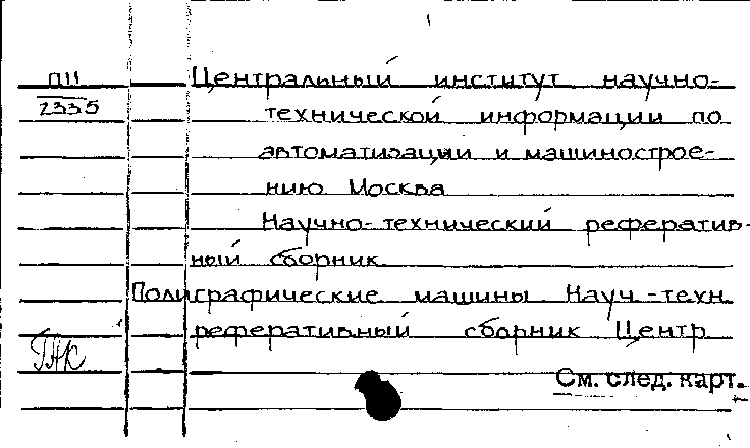 П11
2335
Центральный институт научно-
технической информации по
автоматизации и машинострое-
нию Москва
Научно-технический рефератив-
ный сборник
Полиграфические машины Науч-техн
реферативный сборник Центр
ГАК
См. след. карт.